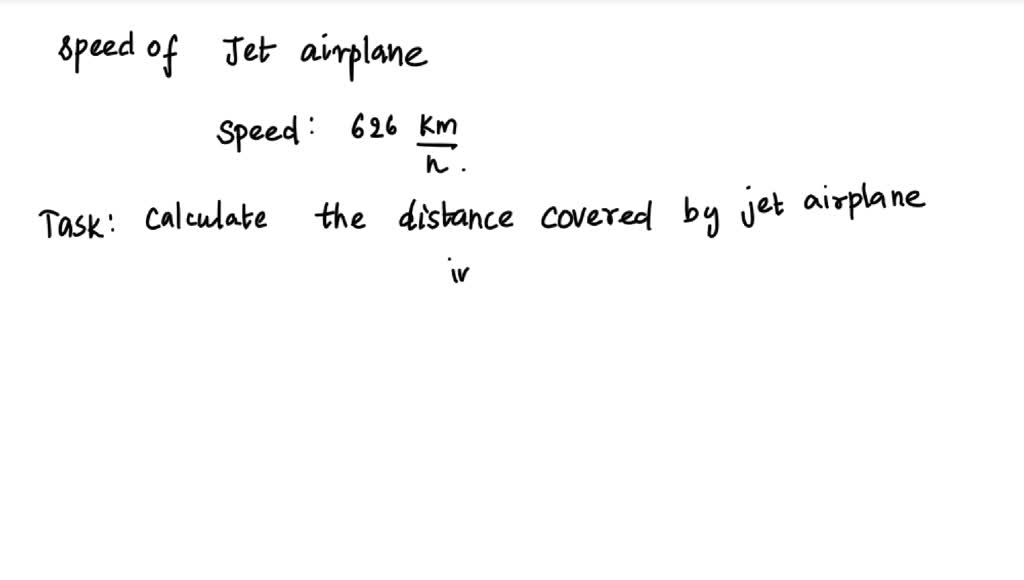 speed of Jet airplane
Speed: 626 Km/h.
Task: Calculate the distance covered by jet airplane
in